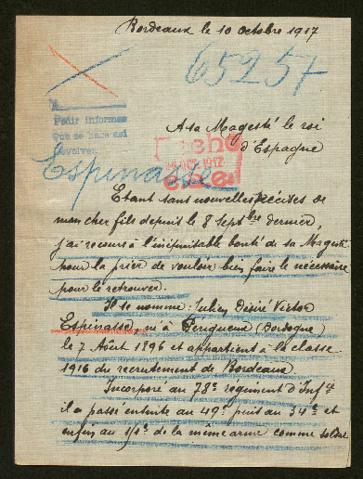 Bordeaux le 10 octobre 1917
65257
Pedir informes
Que se haga así
Devolver.
Espinasse
A sa Magesté le roi
d'Espagne
Etant sans nouvelles précises de
mon cher fils depuis le 8 Septbre dernier,
j'ai recours à l'inépuisable bonté de sa Magesté
pour la prier de vouloir bien faire le nécessaire
pour le retrouver.
Il se nomme Julien Désiré Victor
Espinasse, né à Périgueux (Dordogne)
le 7 Août 1896 et appartient à la classe
1916 du recrutement de Bordeaux
Incorporé au 78e regiment d'Infie
il a passé ensuite au 49e puis au 34e et
enfin au de la même arme comme soldat